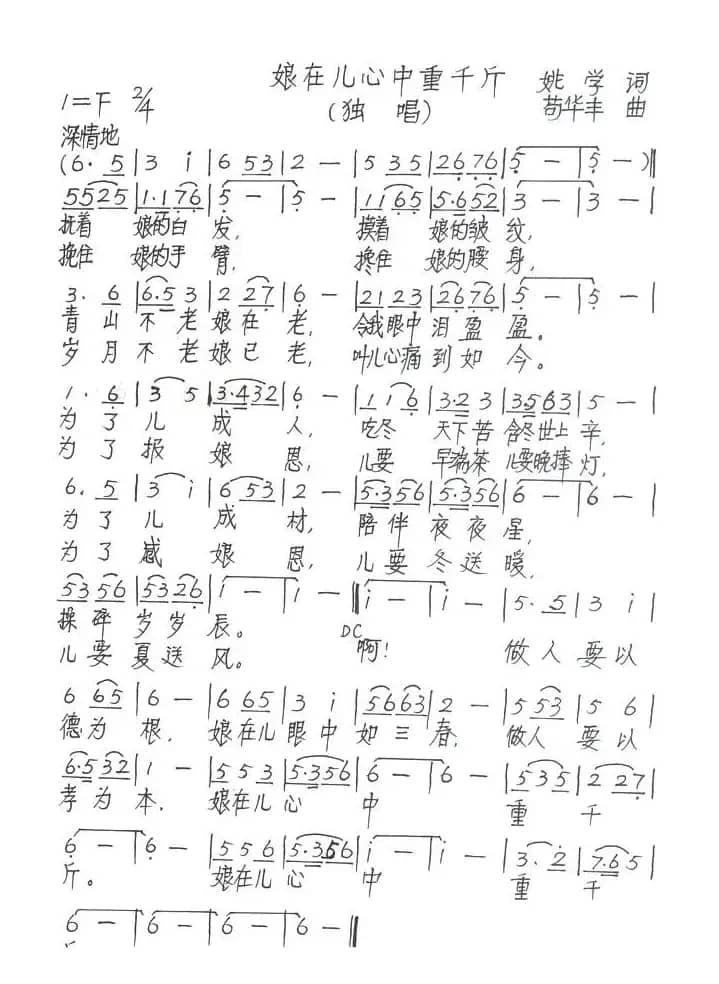 娘在儿心中重千斤 姚学 词
1=F 2/4 (独 唱) 苟华丰 曲
深情地
(6· 5 | 3 i | 6 53 | 2 — | 5 35 | 2676 | 5 — | 5 —)‖
5525 | 1·176 | 5 — | 5 — | 1165 | 5·652 | 3 — | 3 — |
抚着 娘的白 发, 摸着 娘的皱 纹,
挽住 娘的手 臂, 搀住 娘的腰 身,
3· 6 | 6·5 3 | 2 27 | 6 — | 21 23 | 2676 | 5 — | 5 — |
青山不老娘在老, 令我眼中泪盈盈。
岁月不老娘已老, 叫儿心痛到如今。
1· 6 | 3 5 | 3·432 | 6 — | 1 1 6 | 3·2 3 | 3·563 | 5 — |
为了儿 成 人, 吃冬 天下苦 含冬世上辛,
为了报 娘 恩, 儿要 早端茶 儿要晚捧灯,
6· 5 | 3 i | 6 53 | 2 — | 5·356 | 5·356 | 6 — | 6 — |
为了儿 成 材, 陪伴夜夜星,
为了感 娘 恩, 儿要冬送暖,
5356 | 5326 | i — | i — ‖ i — | i — | 5· 5 | 3 i |
操碎岁岁辰。 DC 啊! 做人要以
儿要夏送风。
6 65 | 6 — | 6 65 | 3 i | 5663 | 2 — | 5 53 | 5 6 |
德为根, 娘在儿眼中如三春, 做人要以
6·532 | 1 — | 5 5 3 | 5·356 | 6 — | 6 — | 5 35 | 2 27 |
孝为本. 娘在儿心 中 重 千
6 — | 6 — | 5 5 6 | 5·356 | i — | i — | 3· 2 | 7·65 |
斤。 娘在儿心 中 重 千
6 — | 6 — | 6 — | 6 — ‖